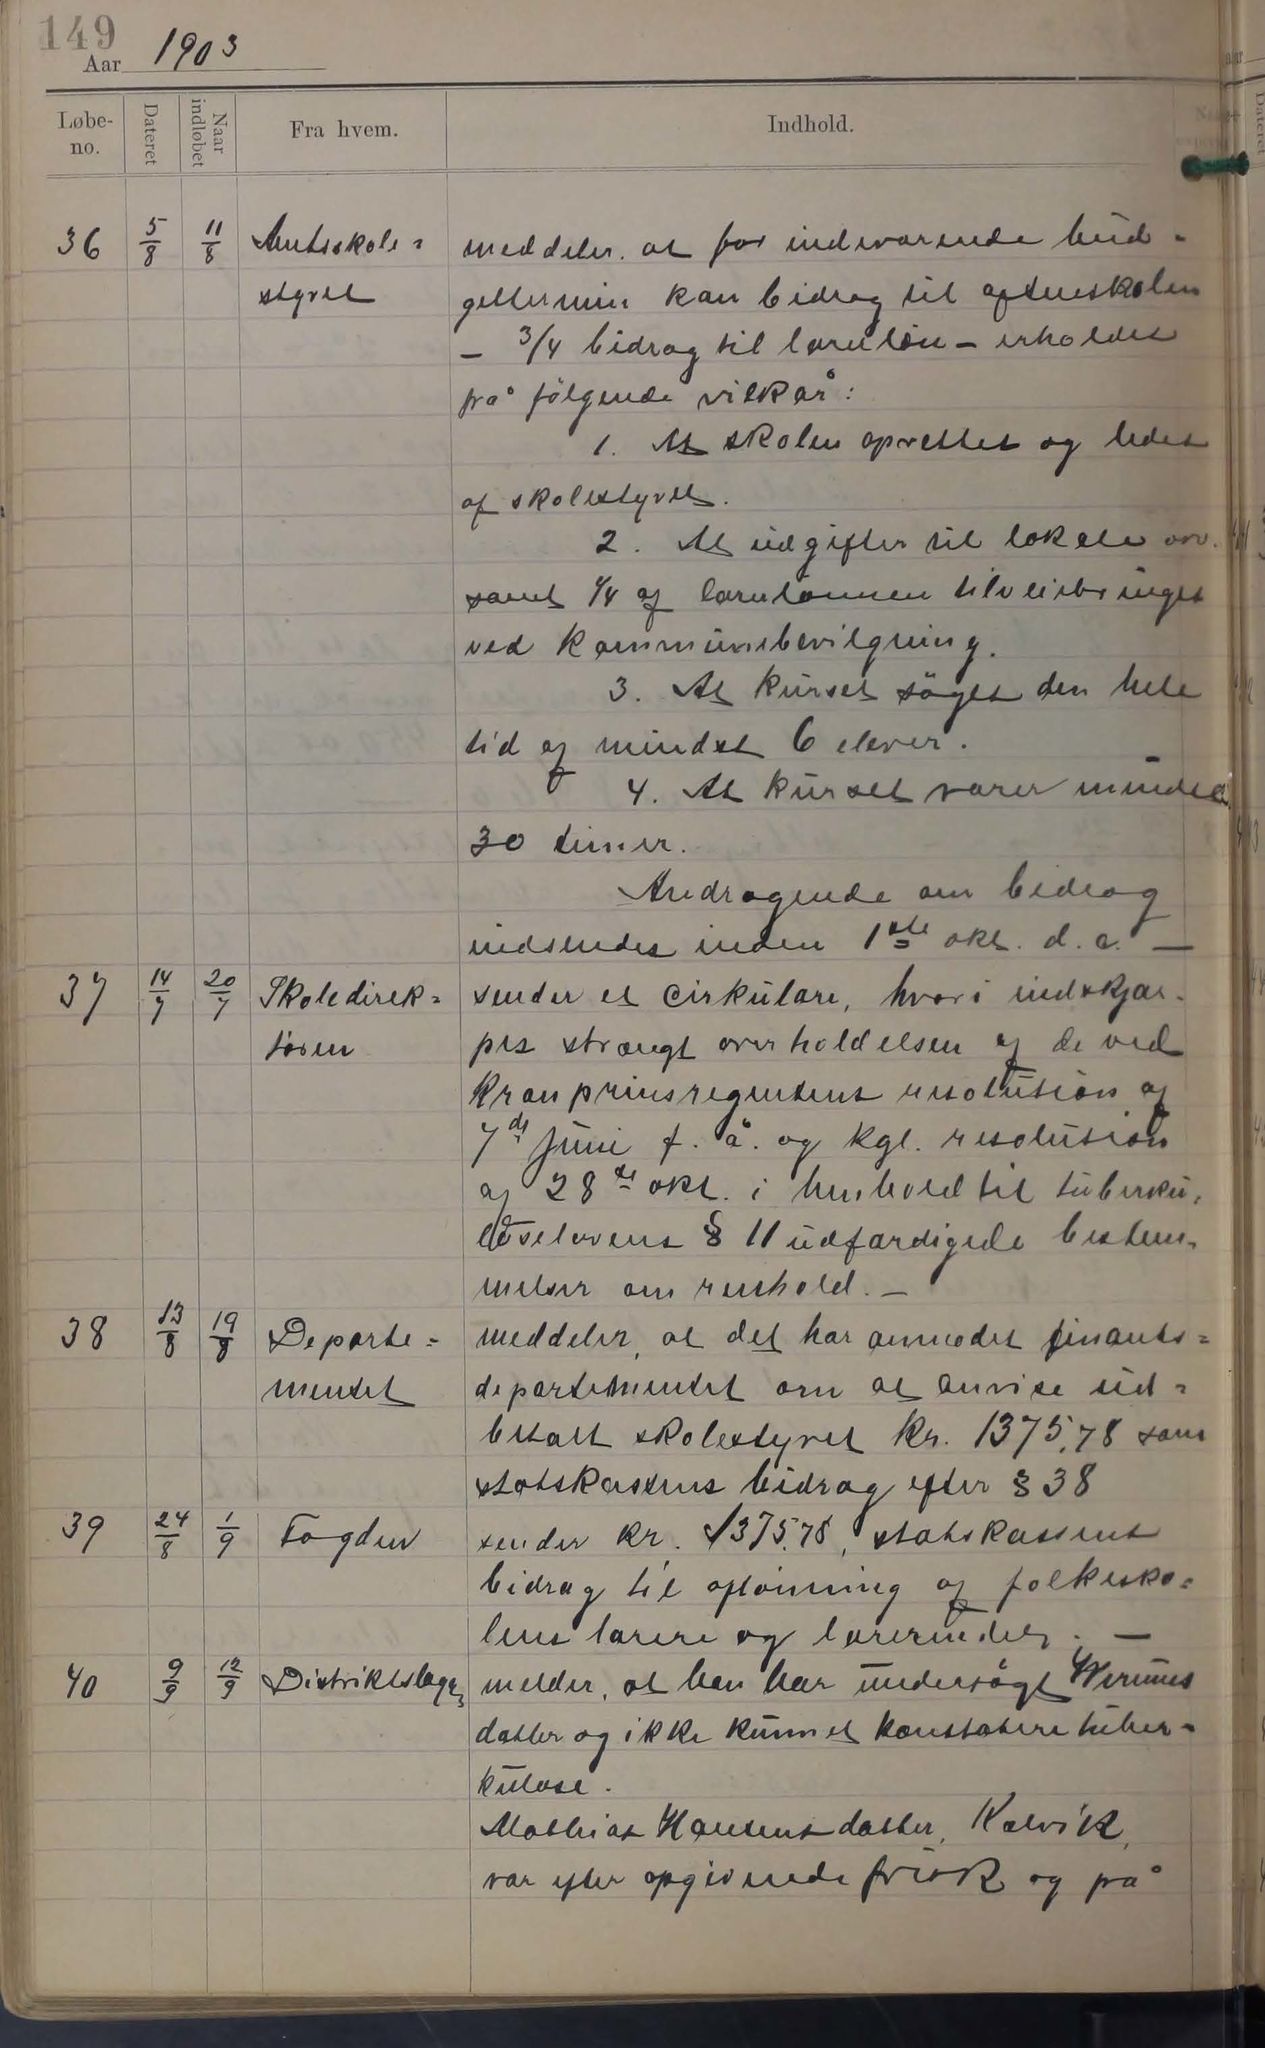 149
Aar 1903
Løbe-no. Dateret Naar indløbet Fra hvem. Indhold.
36 5/8 11/8 Amtsskole= meddeler. at for indeværende bud-
styret gettermin kan bidrag til aftenskolen
- 3/4 bidrag til lærerløn - erholdes
på følgende vilkår:
1. At skolen oprettes og ledes
af skolestyret.
2. At udgifter til lokale osv.
samt 1/4 af lærerlønnen tilveiebringes
ved kommunebevilgning.
3. At kurset søges den hele
tid af mindst 6 elever.
4. At kurset varer mindst
30 timer.
Andragende om bidrag
indsendes inden 1ste okt. d. a. —
37 14/7 20/7 Skoledirek= sender et cirkulære, hvori indskjær-
tøren pes strængt overholdelsen af de ved
kronprinsregentens resolution af
7de juni f. å. og kgl. resolution
af 28de okt. i henhold til tuberku-
loselovens § 11 udfærdigede bestem-
melser om renhold. —
38 13/8 19/8 Departe= meddeler, at det har anmodet finants=
mentet departementet om at anvise ud=
betalt skolestyret kr. 1375,78 som
statskassens bidrag efter § 38
39 24/8 1/9 Fogden sender kr. 1375.78, statskassens
bidrag til aflønning af folkesko=
lens lærere og lærerinder. —
40 9/9 12/9 Distriktslægen melder, at han har undersøgt
datter og ikke kunnet konstatere tuber-
kulose.
Mathias Hansens datter, Kalvik,
var efter opgivende frisk og på